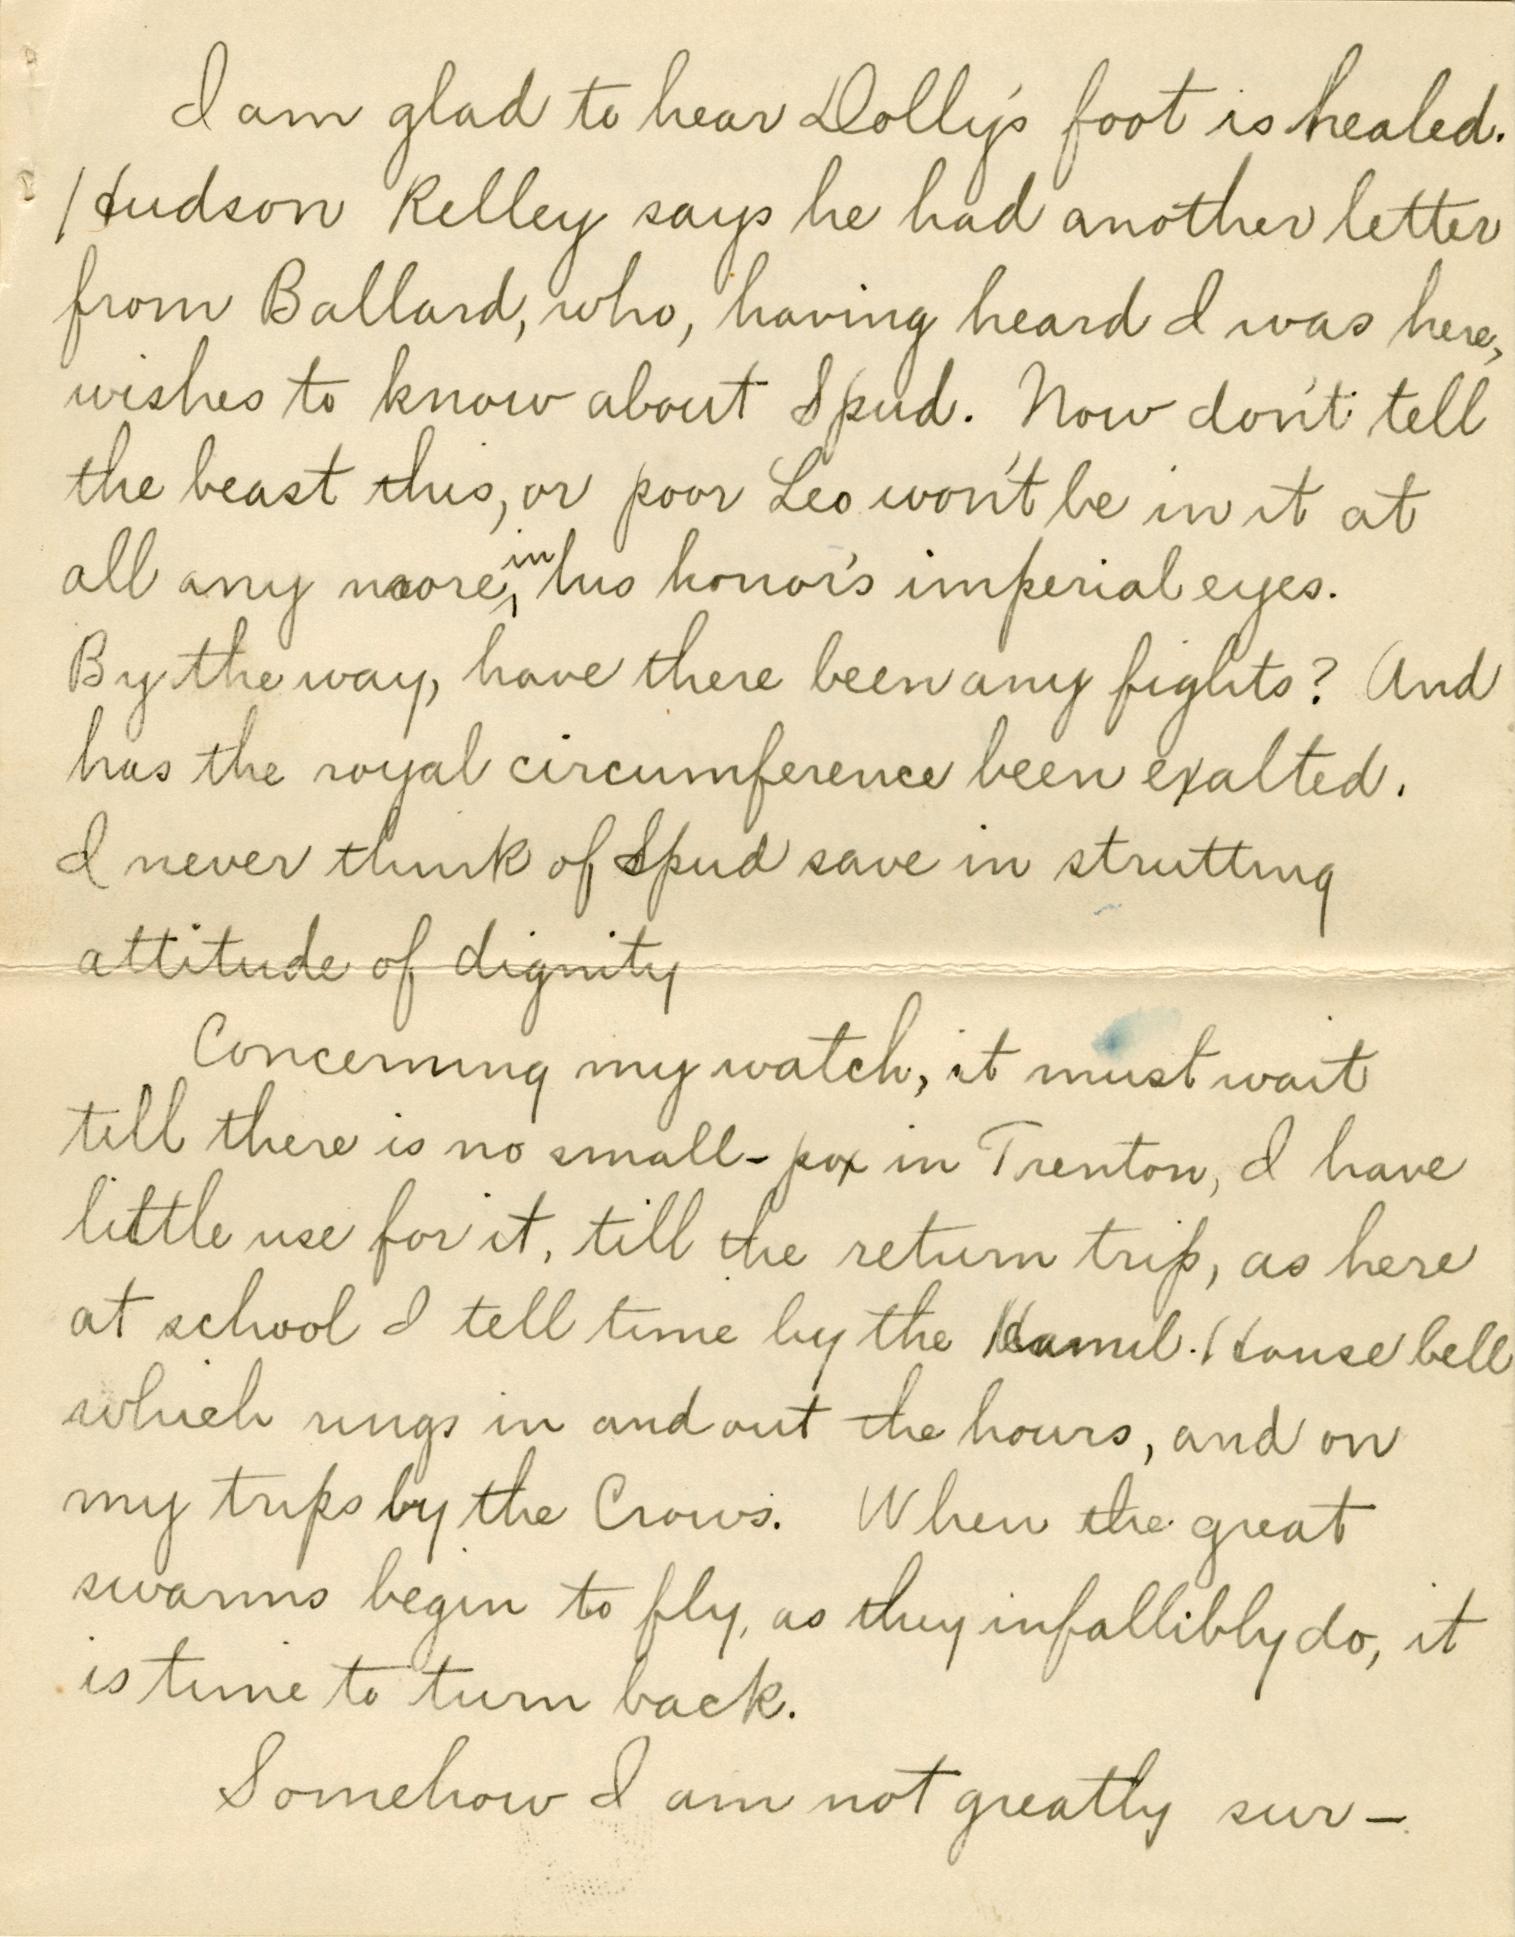 I am glad to hear Dolly's foot is healed.
Hudson Kelley says he had another letter
from Ballard, who, having heard I was here,
wishes to know about Spud. Now don't tell
the beast this, or poor Leo won't be in it at
all any more, in his honor's imperial eyes.
By the way, have there been any fights? And
has the royal circumference been exalted.
I never think of Spud save in strutting
attitude of dignity
Concerning my watch, it must wait
till there is no small-pox in Trenton, I have
little use for it, till the return trip, as here
at school I tell time by the Hamil. House bell
which rings in and out the hours, and on
my trips by the Crows. When the great
swarms begin to fly, as they infallibly do, it
is time to turn back.
Somehow I am not greatly sur-